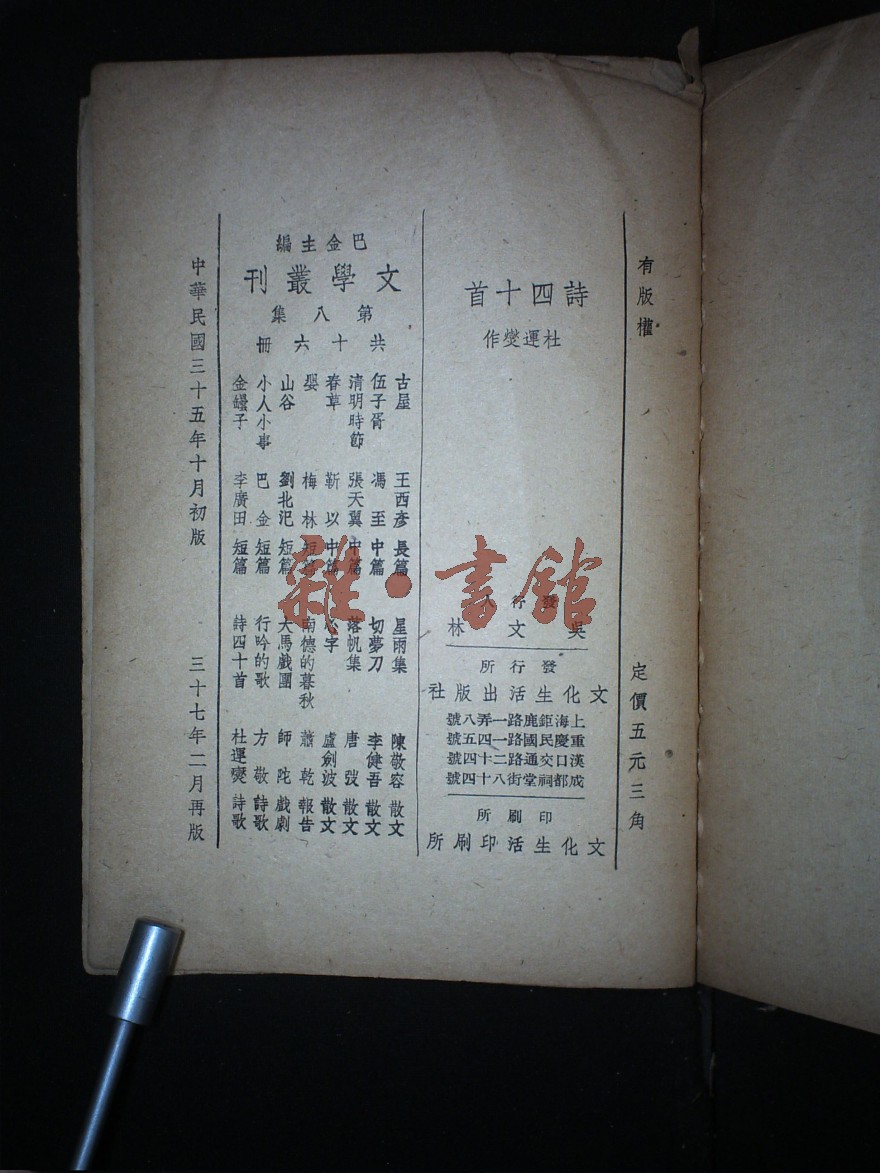 有版權
定價五元三角
詩四十首
杜運燮作
發行人
吳文林
發行所
文化生活出版社
上海鉅鹿路一弄八號
重慶民國路一四五號
漢口交通路二十四號
成都祠堂街八十四號
印刷所
文化生活印刷所
巴金主編
文學叢刊
第八集
共十六冊
古屋 王西彥 長篇
伍子胥 馮至 中篇
清明時節 張天翼 中篇
春草 靳以 中篇
嬰 梅林 短篇
山谷 劉北汜 短篇
小人小事 巴金 短篇
金罎子 李廣田 短篇
星雨集 陳敬容 散文
切夢刀 李健吾 散文
落帆集 唐弢 散文
心字 盧劍波 散文
南德的暮秋 蕭乾 報告
大馬戲團 師陀 戲劇
行吟的歌 方敬 詩歌
詩四十首 杜運燮 詩歌
中華民國三十五年十月初版
三十七年二月再版
雜·書館